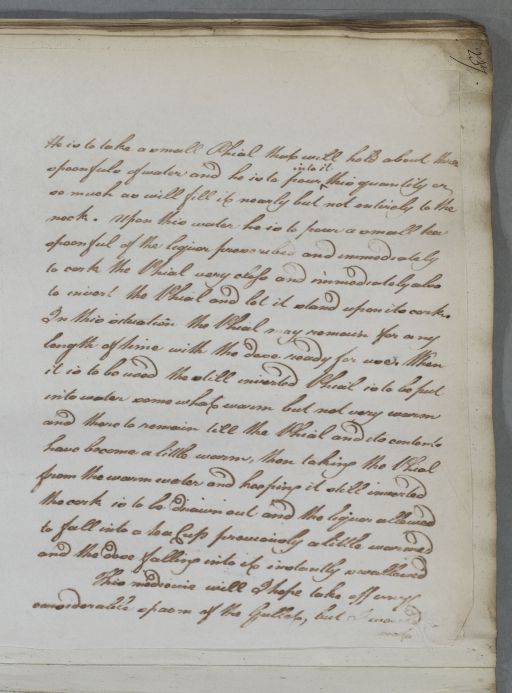 234.
He is to take a small Phial that will hold about three
spoonfuls of water and he is to pour into it this quantity or
so much as will fill it nearly but not entirely to the
neck. Upon this water he is to pour a small tea
spoonful of the liquor prescribed and immediately
to cork the Phial very close and immediately also
to invert the Phial and let it stand upon its cork.
In this situation the Phial may remain for any
length of time with the dose ready for use. When
it is to be used the still inverted Phial is to be put
into water some what warm but not very warm
and there to remain till the Phial and its contents
have become a little warm, then taking the Phial
from the warm water and keeping it still inverted
the cork is to be drawn out and the liquor allowed
to fall into a tea Cup previously a little warmed
and the dose falling into it instantly swallowed
This medicine will I hope take off any
considerable spasm of the Gullet, but I would